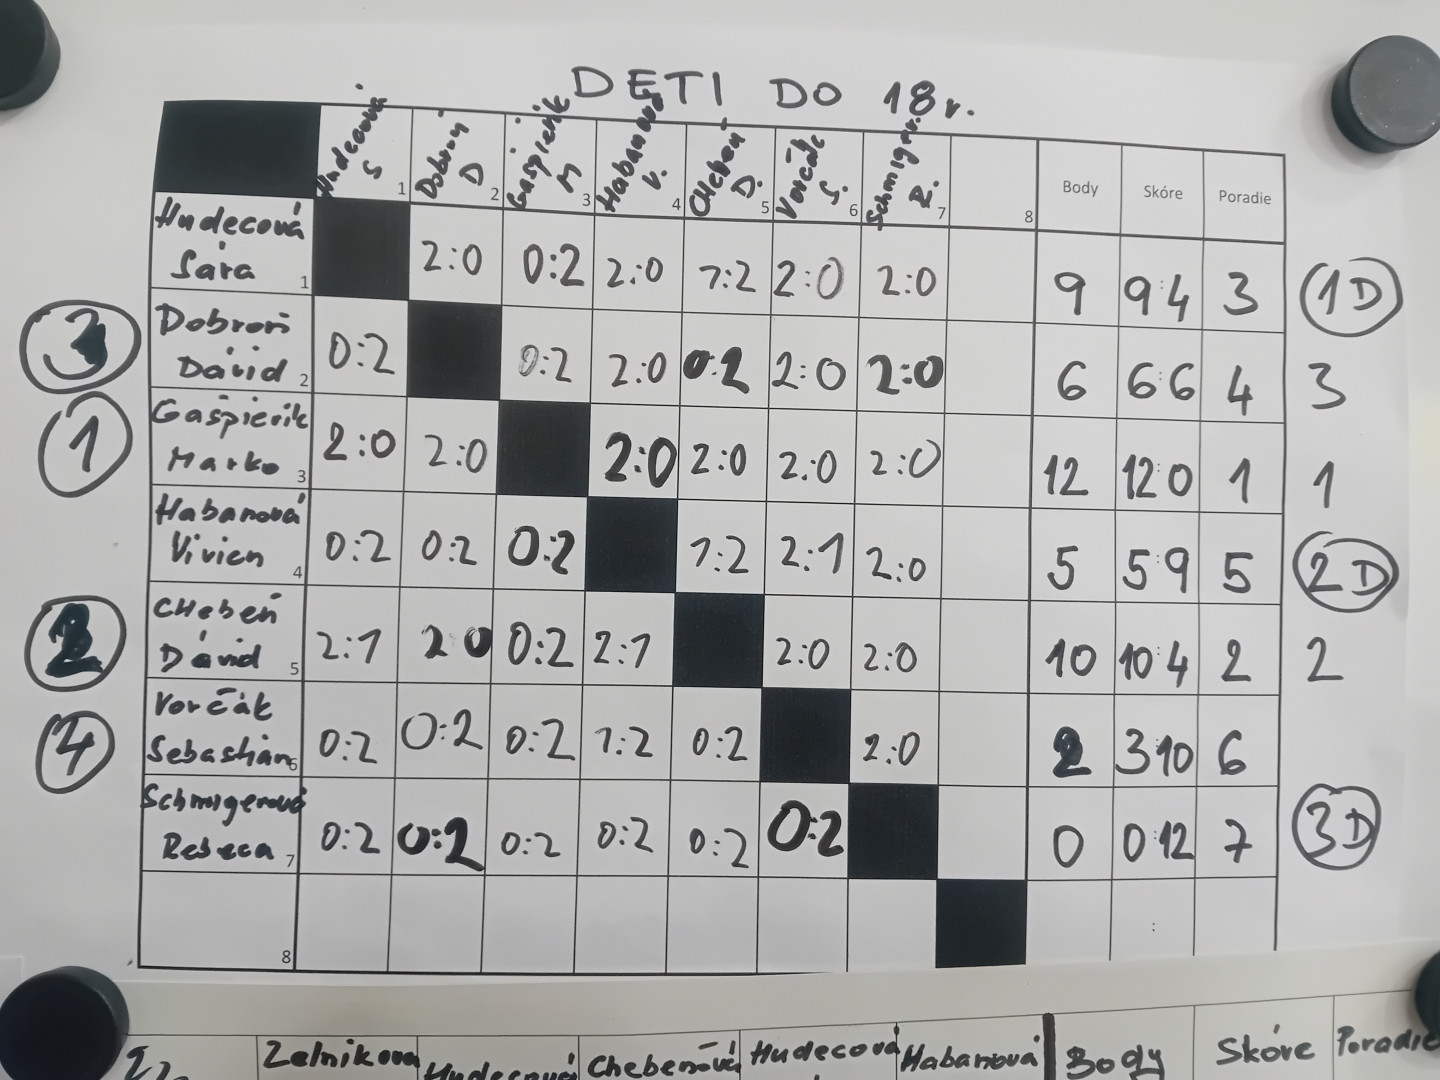 DETI DO 18 r.
Hudecová S 1 Dobroň D 2 Gašpierik M 3 Habanová V. 4 CHebeň D. 5 Vorčák S. 6 Schmiger. R. 7 8 Body Skóre Poradie
Hudecová Sára 1 2:0 0:2 2:0 1:2 2:0 2:0 9 9:4 3 1D
3 Dobroň Dávid 2 0:2 0:2 2:0 0:2 2:0 2:0 6 6:6 4 3
1 Gašpierik Marko 3 2:0 2:0 2:0 2:0 2:0 2:0 12 12:0 1 1
Habanová Vivien 4 0:2 0:2 0:2 1:2 2:1 2:0 5 5:9 5 2D
2 CHebeň Dávid 5 2:1 2:0 0:2 2:1 2:0 2:0 10 10:4 2 2
4 Vorčák Sebastián 6 0:2 0:2 0:2 1:2 0:2 2:0 2 3:10 6
Schmigerová Rebeca 7 0:2 0:2 0:2 0:2 0:2 0:2 0 0:12 7 3D
8 :
Zelnikova Hudecová Chebeňová Hudecová Habanová Body Skóre Poradie